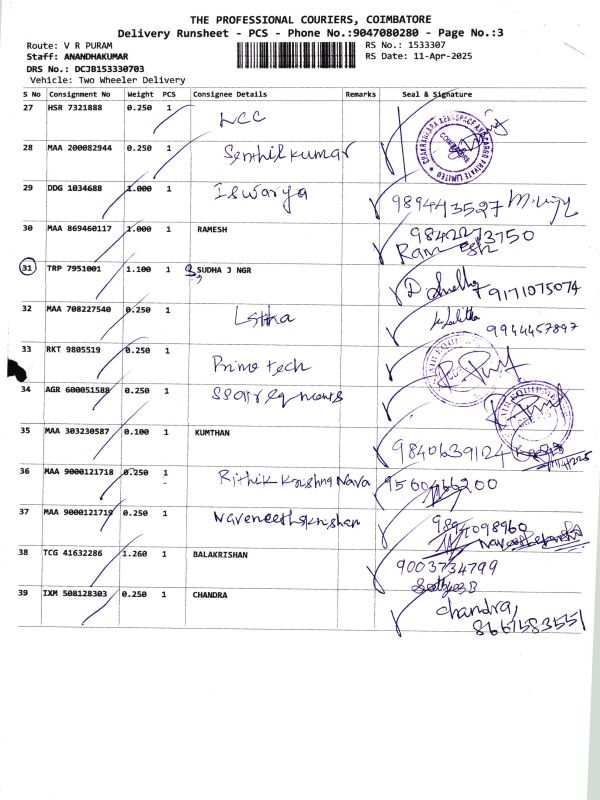 THE PROFESSIONAL COURIERS, COIMBATORE
Delivery Runsheet - PCS - Phone No.:9047080280 - Page No.:3
Route: V R PURAM RS No.: 1533307
Staff: ANANDHAKUMAR RS Date: 11-Apr-2025
DRS No.: DCJB153330703
Vehicle: Two Wheeler Delivery
S No Consignment No Weight PCS Consignee Details Remarks Seal & Signature
27 HSR 7321888 0.250 1 LCC
CHAKRADHARA AEROSPACE AND CARGO PRIVATE LIMITED
28 MAA 200082944 0.250 1 Senthil kumar
29 DDG 1034688 1.000 1 Iswarya 989443527
30 MAA 869460117 1.000 1 RAMESH 9842273750
Ramesh
31 TRP 7951001 1.100 1 SUDHA J NGR 9171075074
32 MAA 708227540 0.250 1 Lalitha
9944457897
33 RKT 9805519 0.250 1 Prime tech
34 AGR 600051588 0.250 1
35 MAA 303230587 0.100 1 KUMTHAN 9840639124
36 MAA 9000121718 0.250 1 Rithik Krishna Nava 9560466200
37 MAA 9000121719 0.250 1 Navaneethakrishan 9894098960
38 TCG 41632286 1.260 1 BALAKRISHAN 9003734799
39 IXM 508128303 0.250 1 CHANDRA chandra,
8667583551